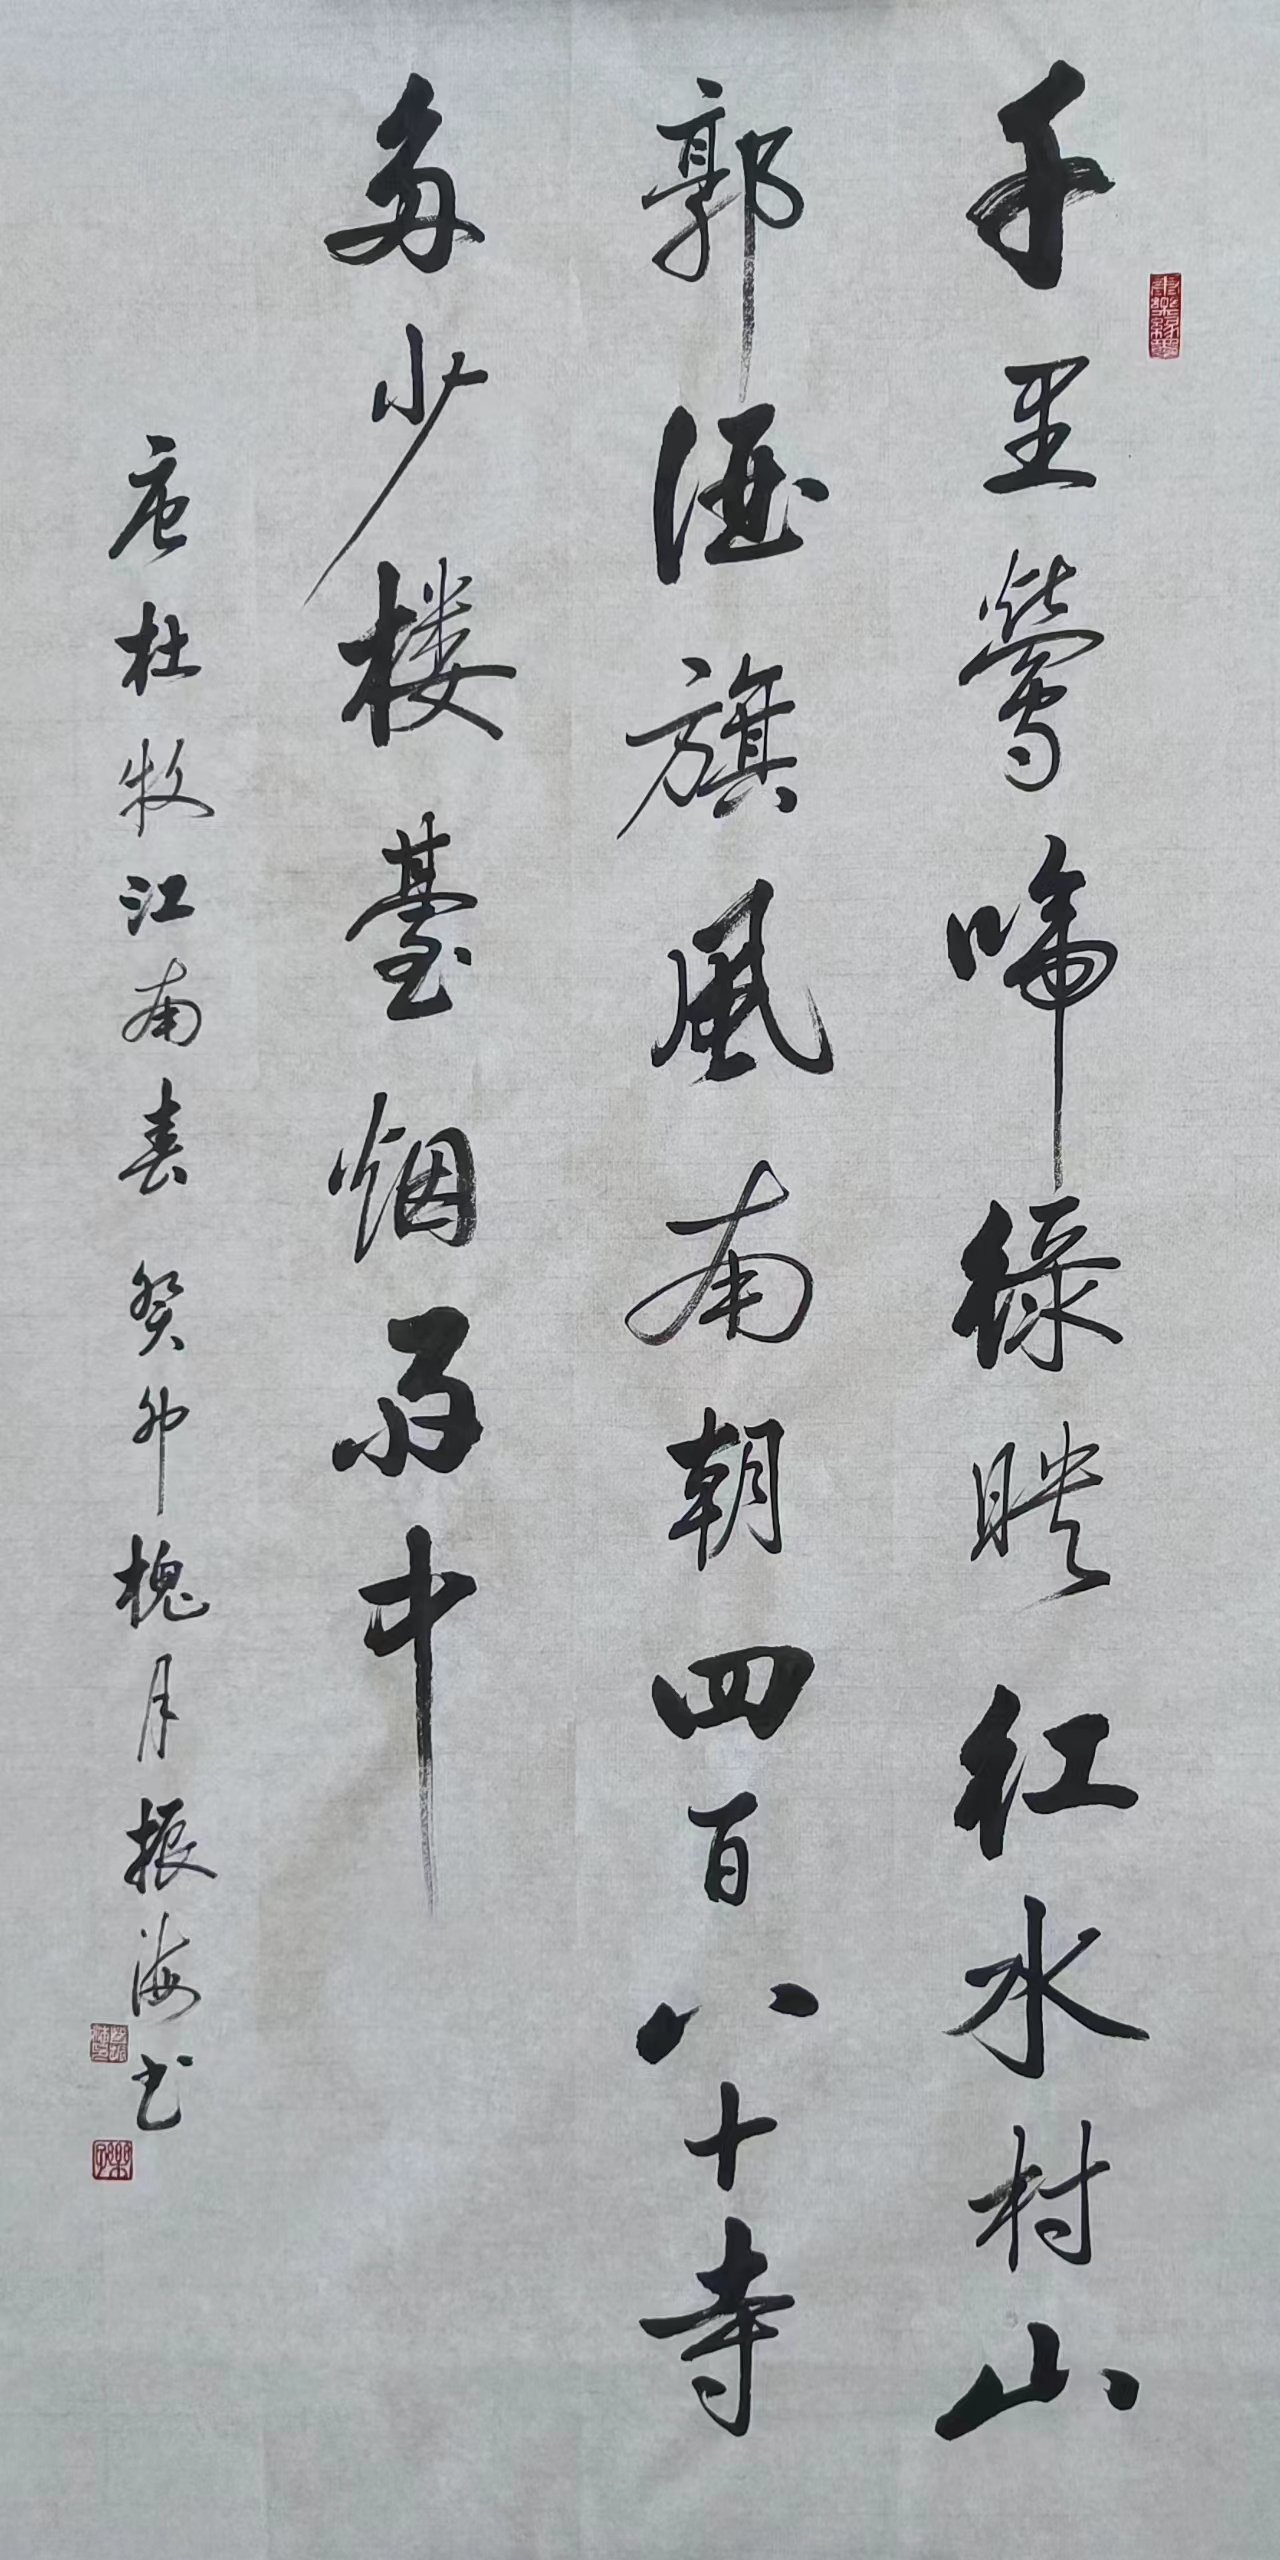 千里莺啼绿暎红水村山
郭酒旗風南朝四百八十寺
多少楼臺烟雨中
唐杜牧江南春 癸卯槐月振海书